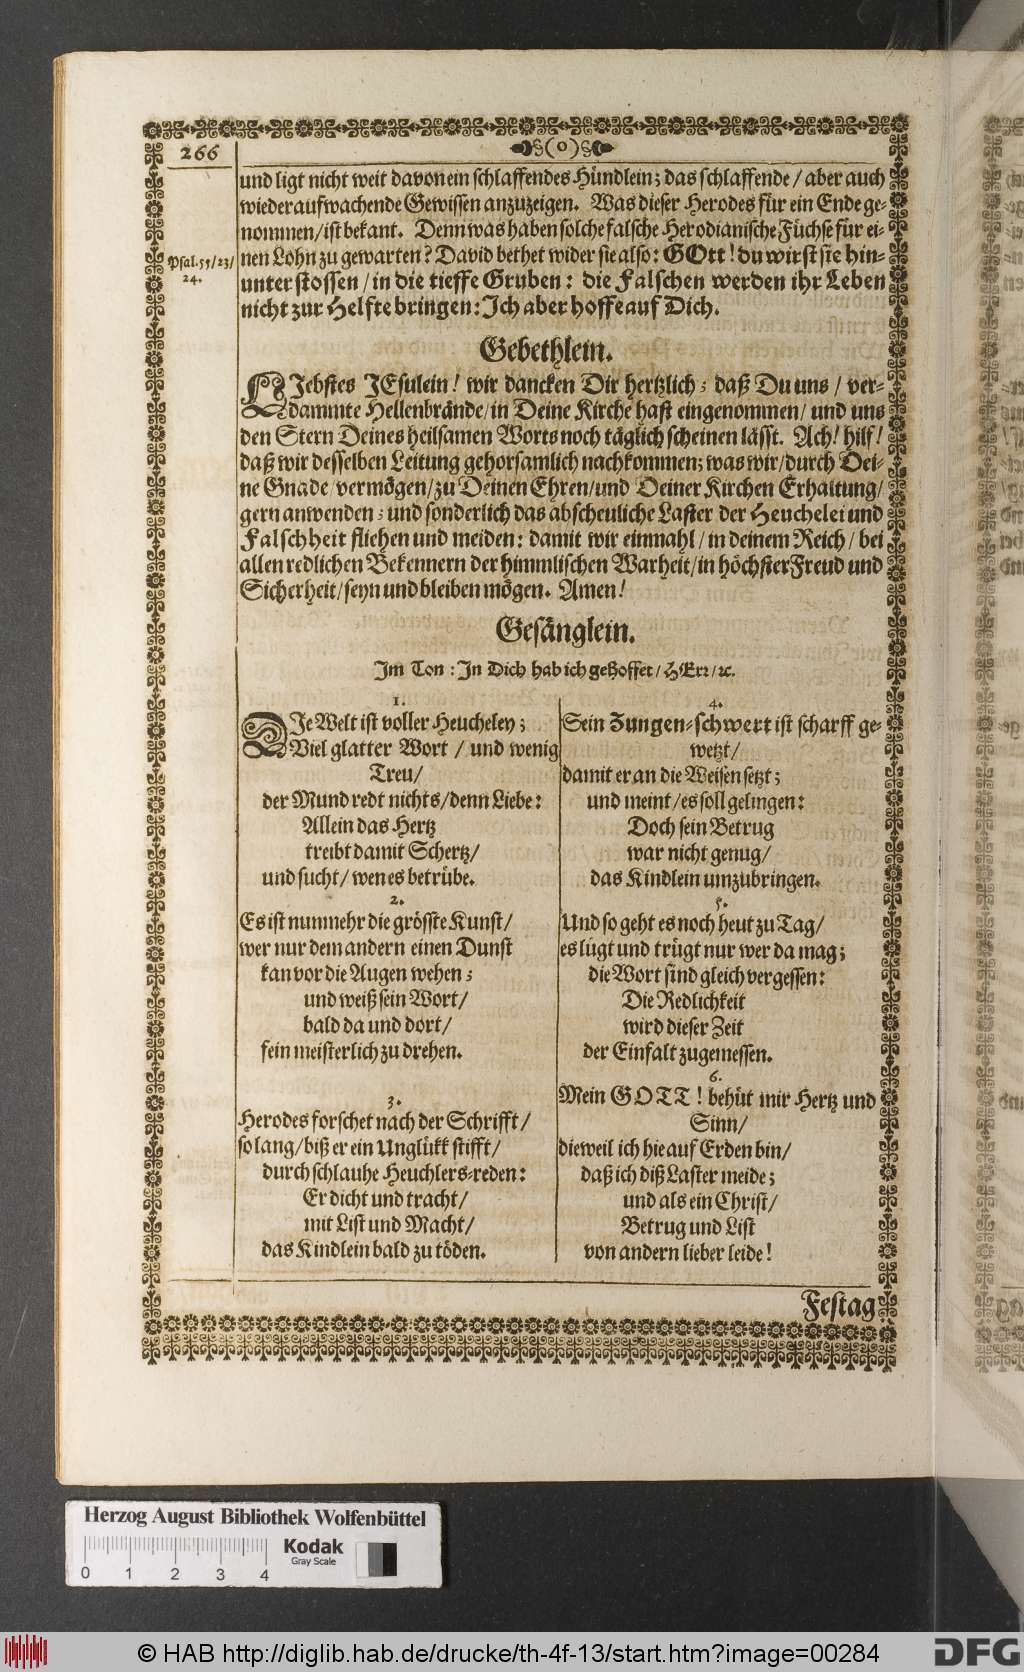 266
(o)
und ligt nicht weit davon ein schlaffendes Hündlein; das schlaffende / aber auch
wiederaufwachende Gewissen anzuzeigen. Was dieser Herodes für ein Ende ge-
nommen / ist bekant. Denn was haben solche falsche Herodianische Füchse für ei-
Psal. 55 / 23 /
24.
nen Lohn zu gewarten? David bethet wider sie also: GOtt! du wirst sie hin-
unter stossen / in die tieffe Gruben: die Falschen werden ihr Leben
nicht zur Helfte bringen: Ich aber hoffe auf Dich.
Gebethlein.
LIebstes JEsulein! wir dancken Dir hertzlich; daß Du uns / ver-
dammte Hellenbrände / in Deine Kirche hast eingenommen / und uns
den Stern Deines heilsamen Worts noch täglich scheinen lässt. Ach! hilf!
daß wir desselben Leitung gehorsamlich nachkommen; was wir / durch Dei-
ne Gnade / vermögen / zu Deinen Ehren / und Deiner Kirchen Erhaltung /
gern anwenden; und sonderlich das abscheuliche Laster der Heuchelei und
Falschheit fliehen und meiden: damit wir einmahl / in deinem Reich / bei
allen redlichen Bekennern der himmlischen Warheit / in höchster Freud und
Sicherheit / seyn und bleiben mögen. Amen!
Gesänglein.
Im Ton: In Dich hab ich gehoffet / HErr / ꝛc.
1.
DIe Welt ist voller Heucheley;
Viel glatter Wort / und wenig
Treu /
der Mund redt nichts / denn Liebe:
Allein das Hertz
treibt damit Schertz /
und sucht / wen es betrübe.
2.
Es ist nunmehr die grösste Kunst /
wer nur dem andern einen Dunst
kan vor die Augen wehen;
und weiß sein Wort /
bald da und dort /
fein meisterlich zu drehen.
3.
Herodes forschet nach der Schrifft /
so lang / biß er ein Unglükk stifft /
durch schlauhe Heuchlers-reden:
Er dicht und tracht /
mit List und Macht /
das Kindlein bald zu töden.
4.
Sein Zungen-schwert ist scharff ge-
wetzt /
damit er an die Weisen setzt;
und meint / es soll gelingen:
Doch sein Betrug
war nicht genug /
das Kindlein umzubringen.
5.
Und so geht es noch heut zu Tag /
es lügt und trügt nur wer da mag;
die Wort sind gleich vergessen:
Die Redlichkeit
wird dieser Zeit
der Einfalt zugemessen.
6.
Mein GOTT! behüt mir Hertz und
Sinn /
dieweil ich hie auf Erden bin /
daß ich diß Laster meide;
und als ein Christ /
Betrug und List
von andern lieber leide!
Festag
Herzog August Bibliothek Wolfenbüttel
Kodak
Gray Scale
0 1 2 3 4
© HAB http://diglib.hab.de/drucke/th-4f-13/start.htm?image=00284
DFG